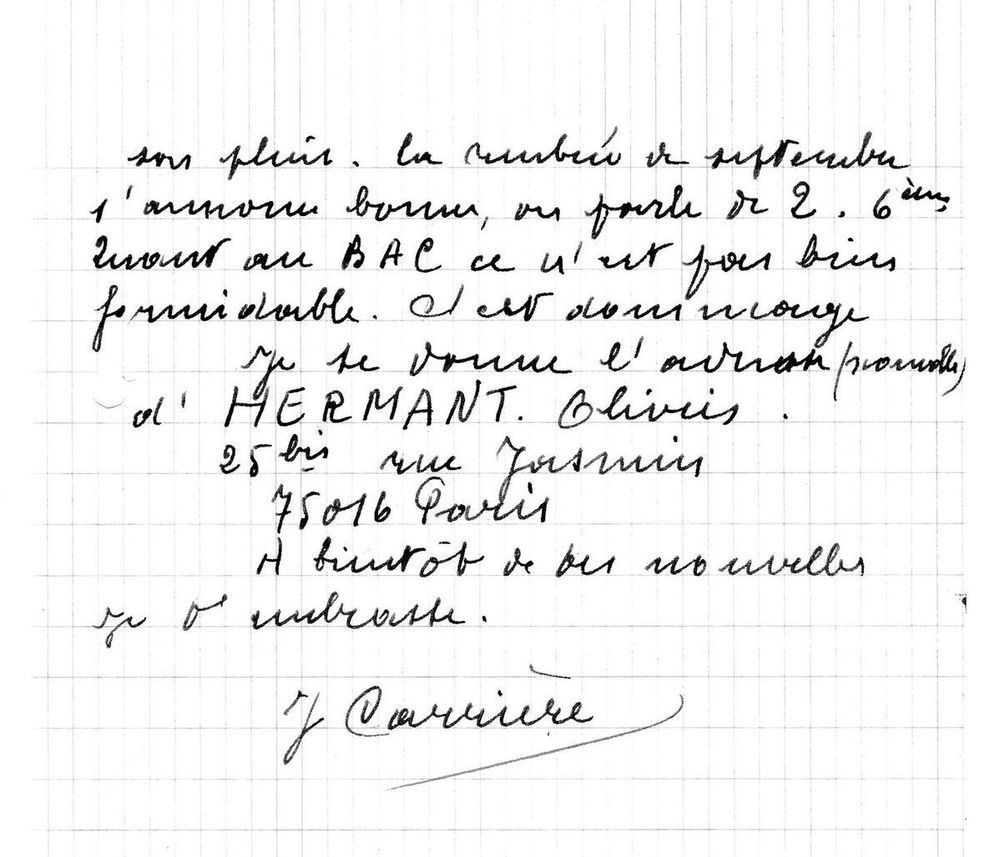 son plein. la rentrée de septembre
s'annonce bonne, on parle de 2. 6èmes
Quant au BAC ce n'est pas bien
formidable. C'est dommage
Je te donne l'adresse (nouvelle)
d'HERMANT. Olivier.
25 bis rue Jasmin
75016 Paris
A bientôt de tes nouvelles
je t'embrasse.
J Carrière